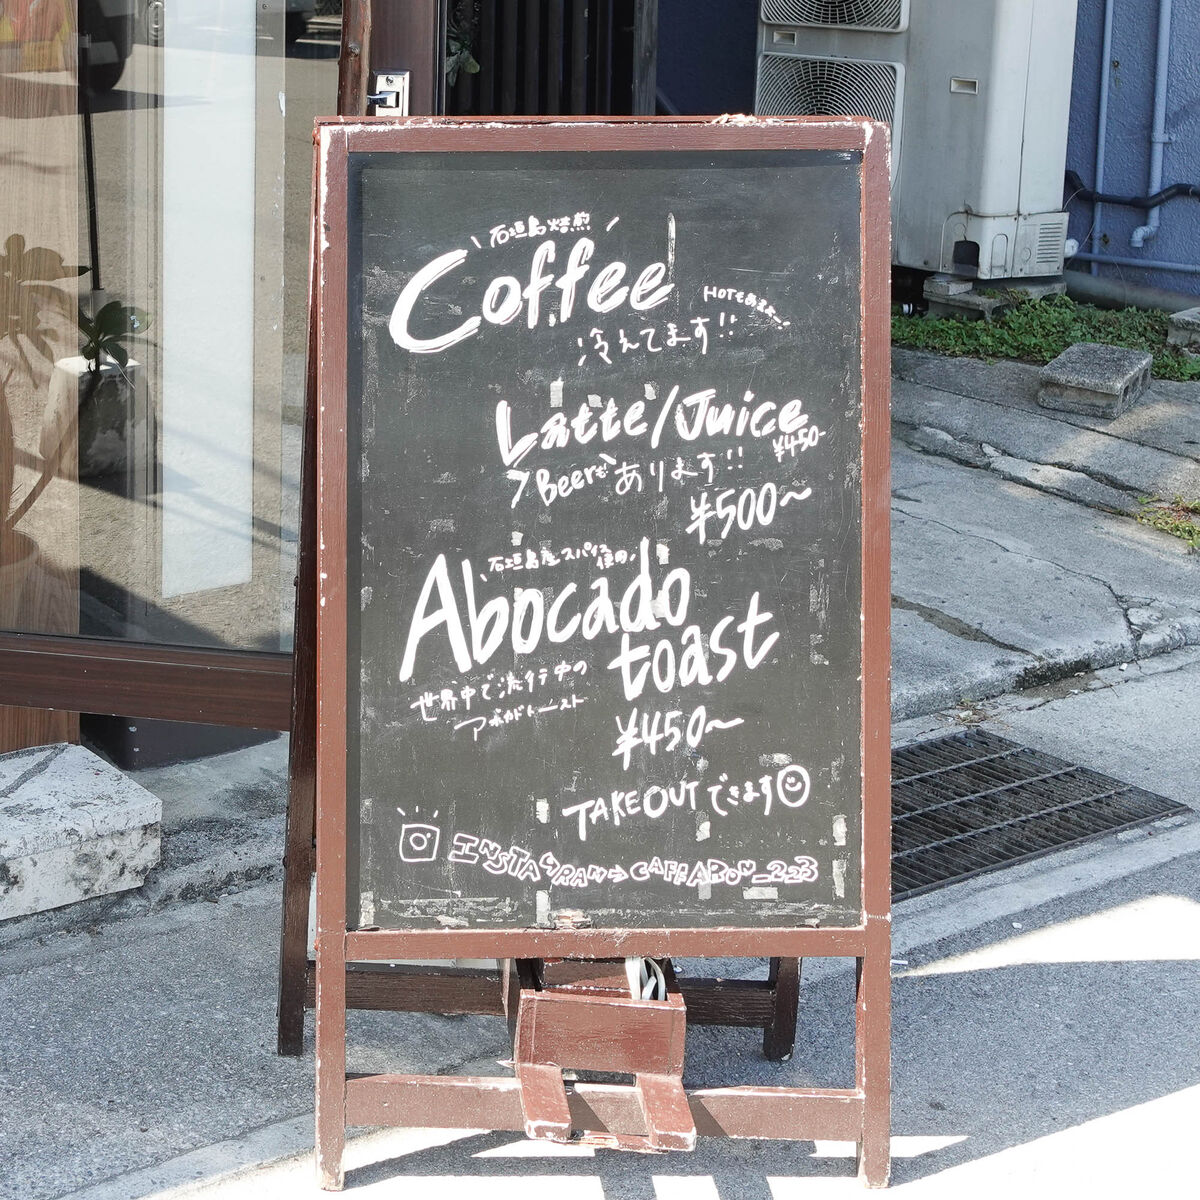 石垣島焙煎
Coffee
HOTもあるよ!!
冷えてます!!
Latte/Juice
¥450-
Beerも あります!!
¥500〜
石垣島産スパイス使用
Abocado
toast
世界中で流行中の
アボガドトースト
¥450〜
TAKE OUT できます
INSTAGRAM→CAFEARON_223